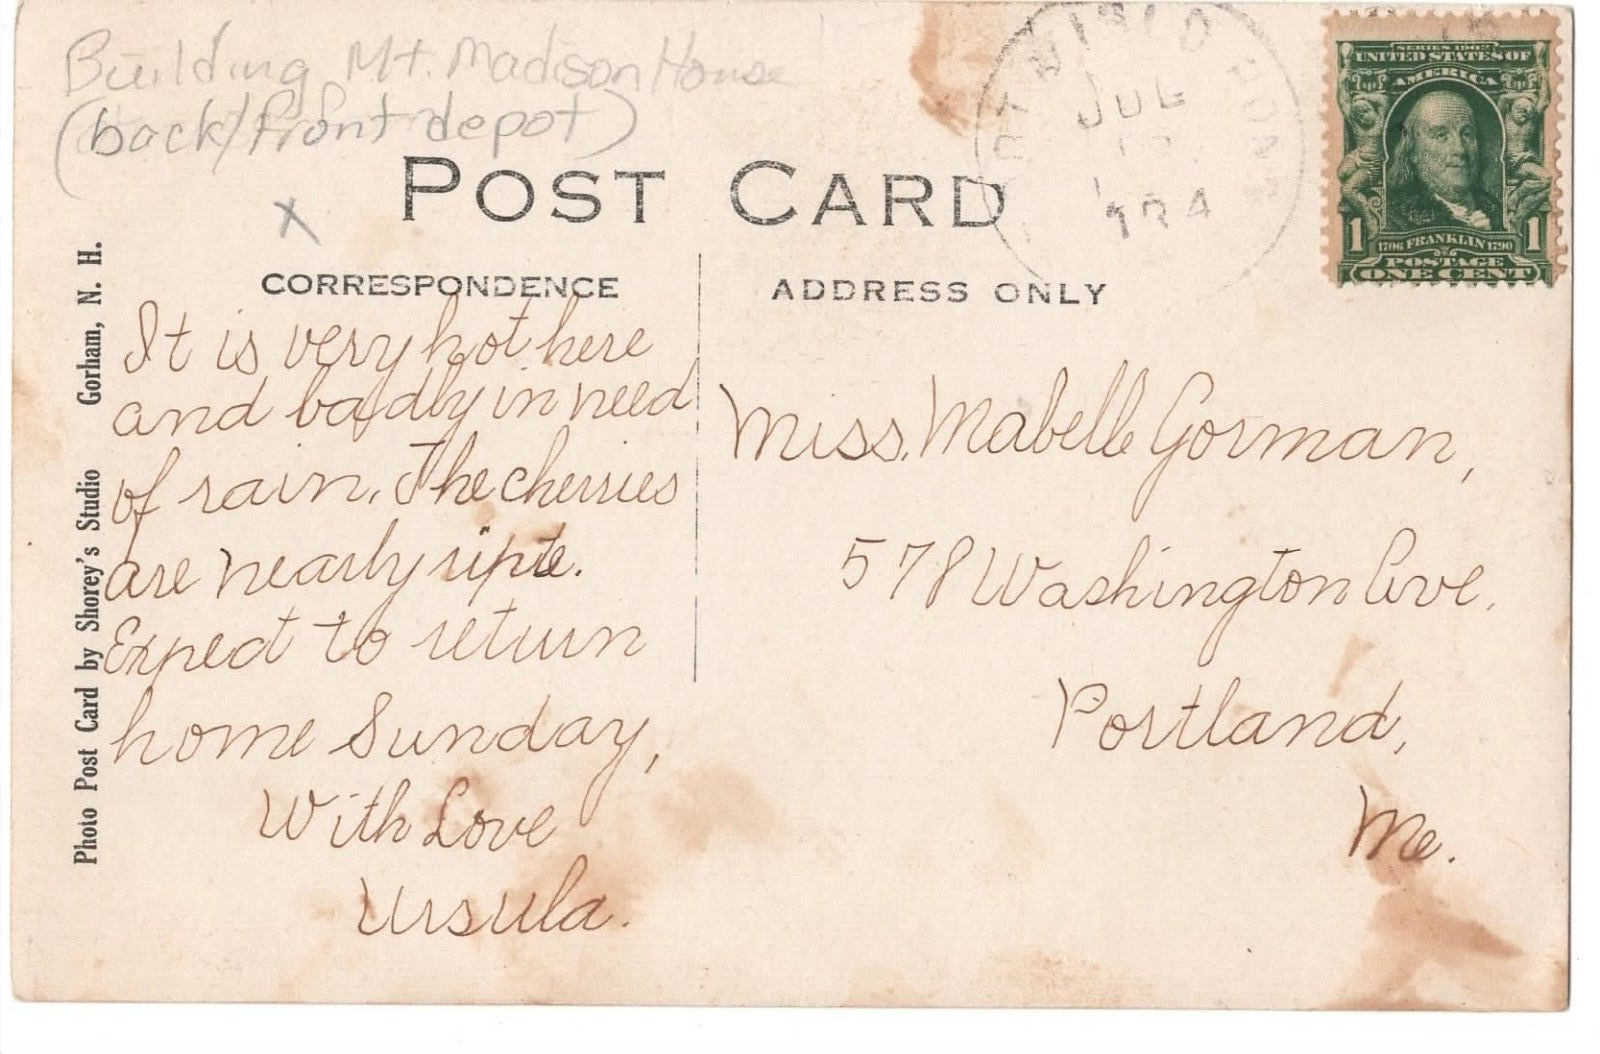 Building Mt. Madison House
(back/front depot)
POST CARD
X
CORRESPONDENCE
ADDRESS ONLY
JUL
SERIES 1902
UNITED STATES OF
AMERICA
1 1
1706 FRANKLIN 1790
POSTAGE
ONE CENT
Photo Post Card by Shorey's Studio Gorham, N. H.
It is very hot here
and badly in need
of rain. The cherries
are nearly ripe.
Expect to return
home Sunday,
With Love
Ursula.
Miss. Mabelle Gorman,
578 Washington Ave.
Portland,
Me.